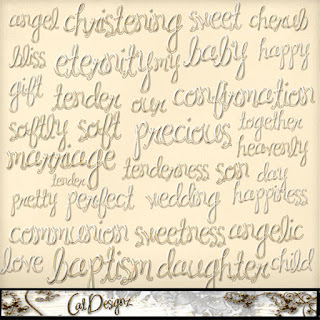 angel christening sweet cherub
bliss eternity my baby happy
gift tender our confirmation
softly soft precious together
marriage tenderness son day heavenly
tender
pretty perfect wedding happiness
communion sweetness angelic
love baptism daughter child
Cat Designz